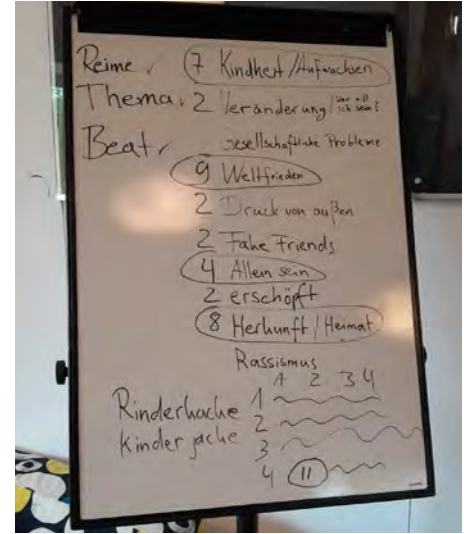 Reime ✓ 7 Kindheit / Aufwachsen
Thema ✓ 2 Veränderung / Wer will ich sein?
Beat ✓ gesellschaftliche Probleme
9 Weltfrieden
2 Druck von außen
2 Fake Friends
4 Allein sein
2 erschöpft
8 Herkunft / Heimat
Rassismus
1 2 3 4
Rinderhacke 1
Kinderjacke 2
3
4 11